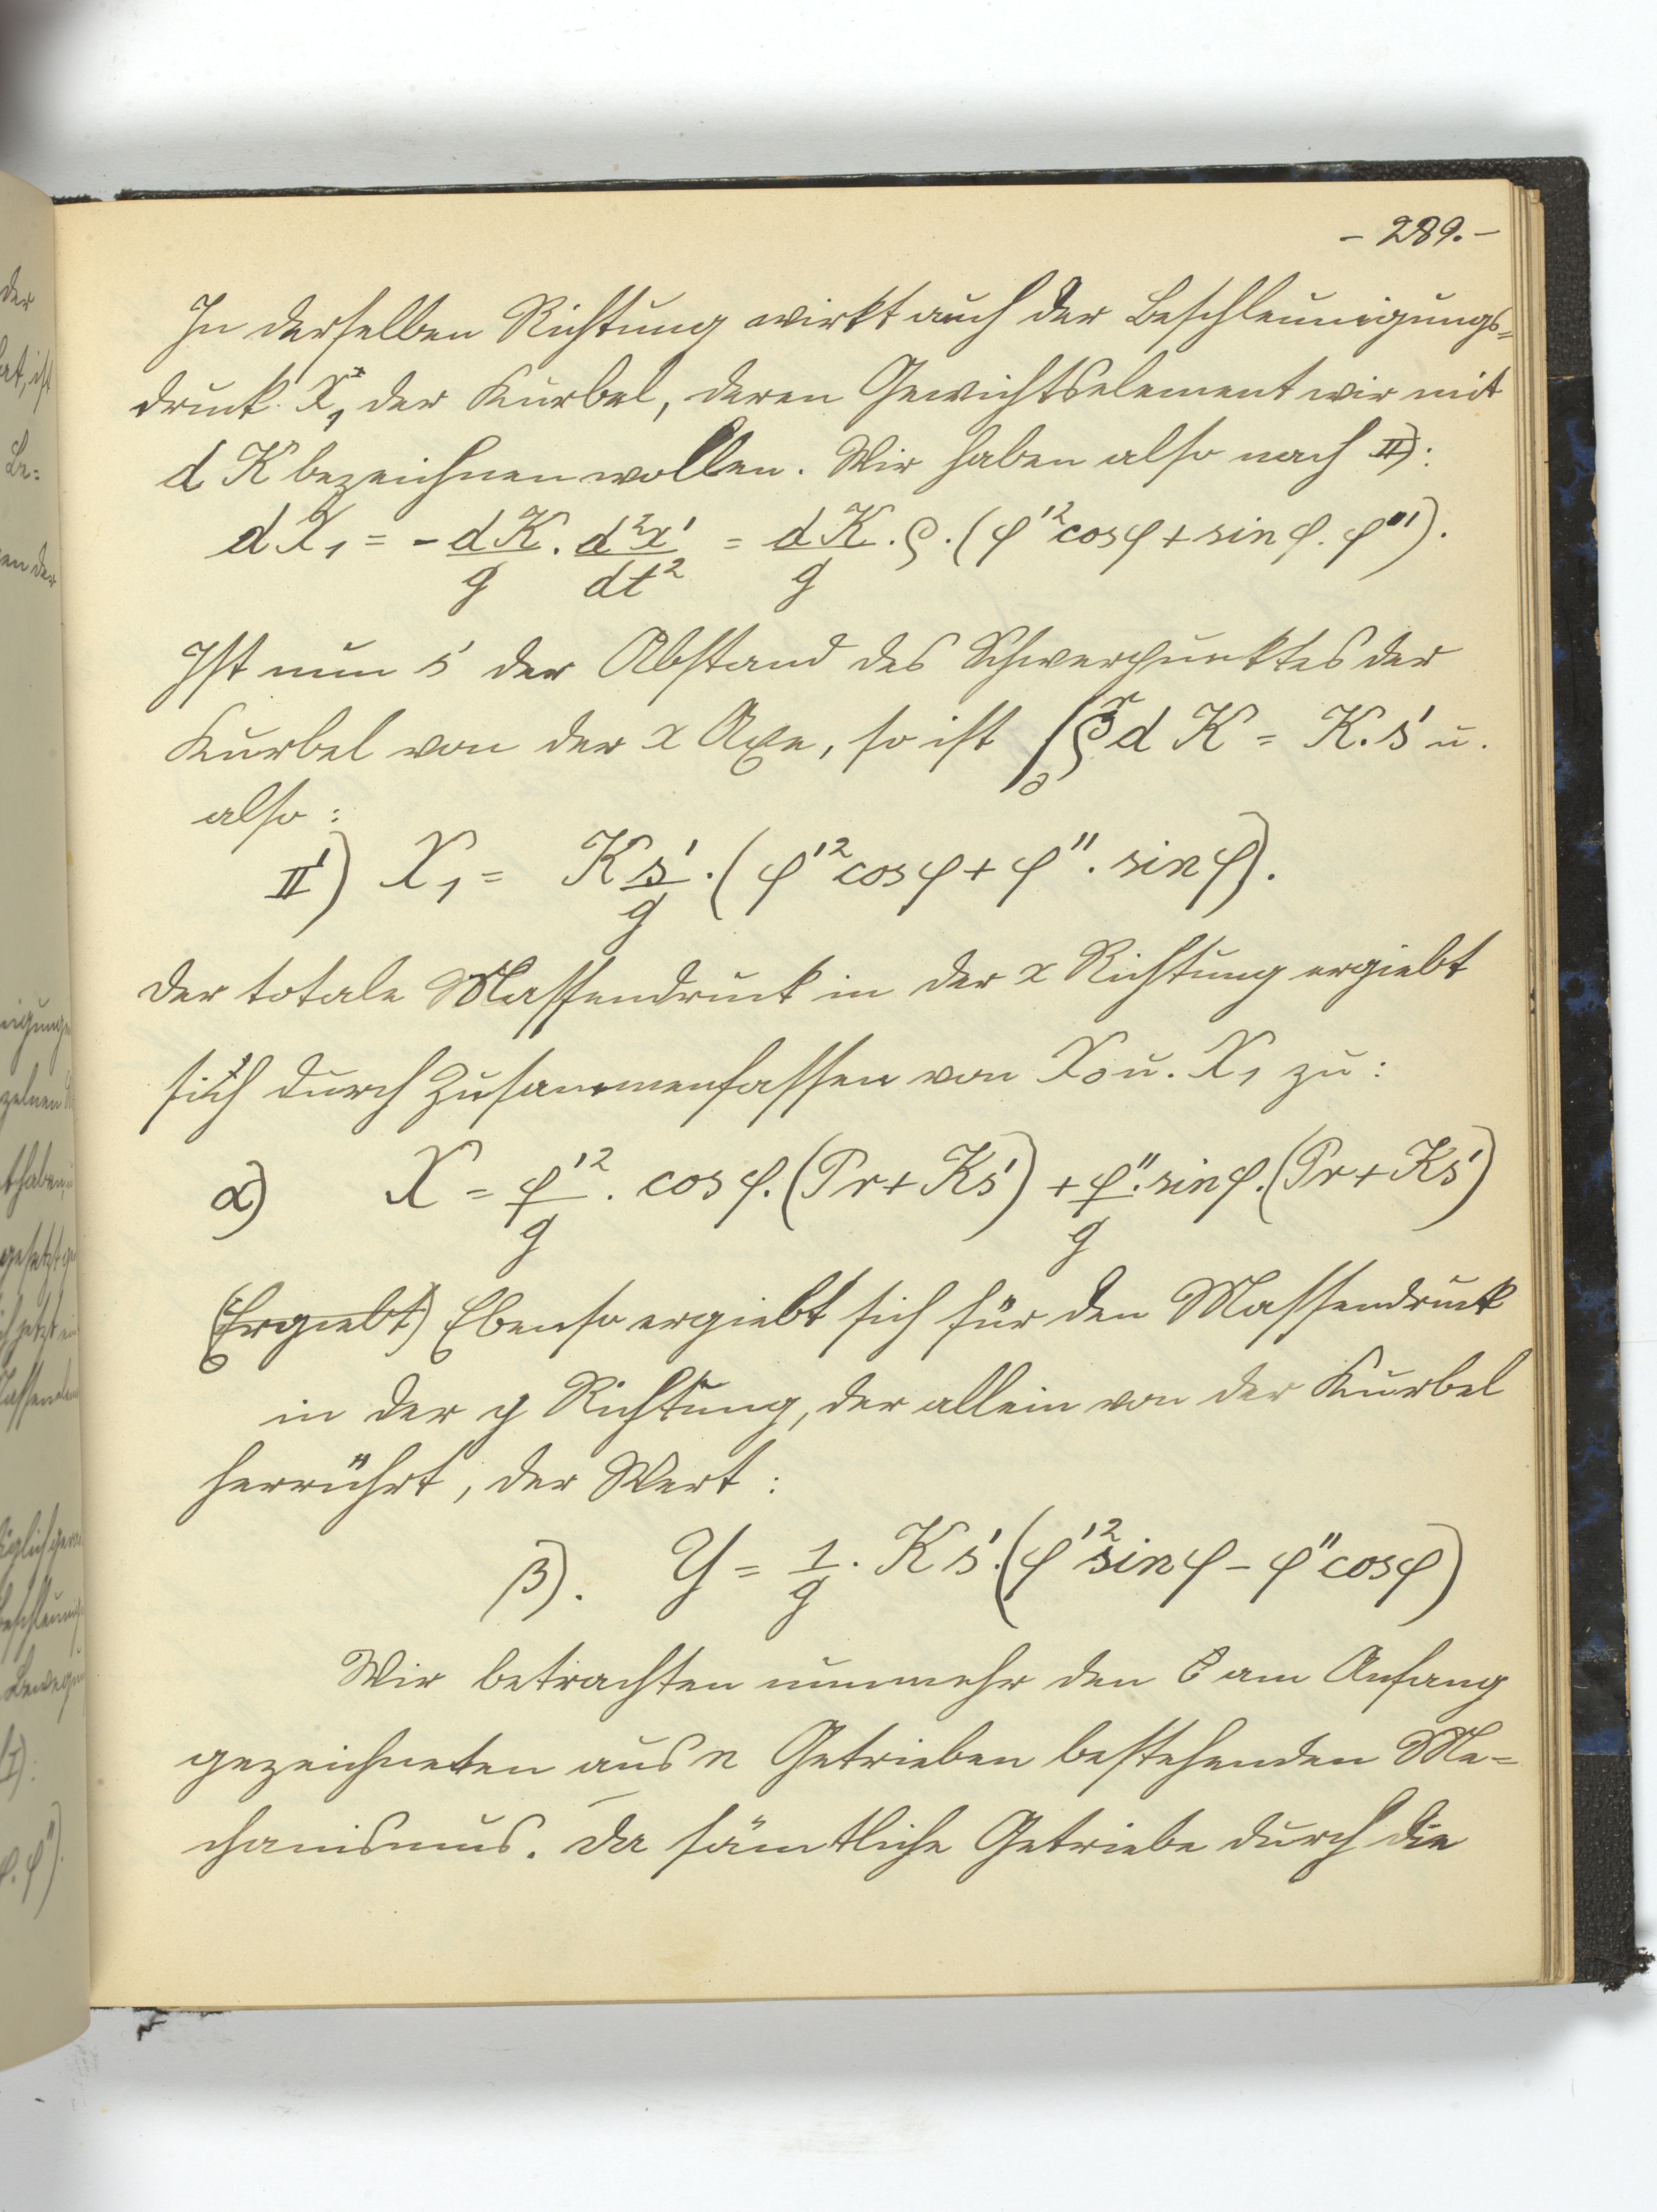 - 289. -
In derselben Richtung wirkt auch der Beschleunigungs=
druck X₁ der Kurbel, deren Gewichtselement wir mit
d K bezeichnen wollen. Wir haben also nach II):
dX₁ = - dK/g . d²x'/dt² = dK/g . ρ . (φ'² cos φ + sin φ . φ'').
Ist nun s' der Abstand des Schwerpunktes der
Kurbel von der x Axe, so ist ∫₀ʳ ρ d K = K. s' u.
also:
II') X₁ = K s'/g . (φ'² cos φ + φ'' . sin φ).
Der totale Massendruck in der x Richtung ergiebt
sich durch Zusammenfassen von X₀ u. X₁ zu:
α) X = φ'²/g . cos φ. (Pr + Ks') + φ''/g . sin φ. (Pr + Ks')
(Ergiebt) Ebenso ergiebt sich für den Massendruck
in der y Richtung, der allein von der Kurbel
herrührt, der Wert:
β). Y = 1/g . K s'. (φ'² sin φ - φ'' cos φ)
Wir betrachten nunmehr den am Anfang
gezeichneten aus n Getrieben bestehenden Me=
chanismus. Da sämtliche Getriebe durch die